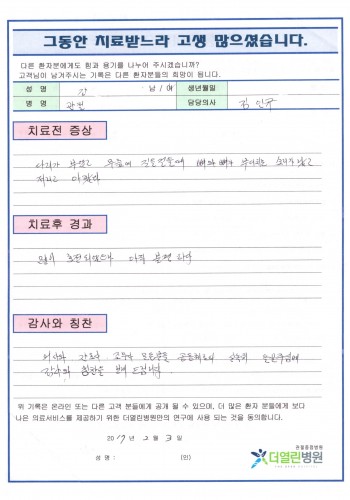 그동안 치료받느라 고생 많으셨습니다.
다른 환자분에게도 힘과 용기를 나누어 주시겠습니까?
고객님이 남겨주시는 기록은 다른 환자분들의 희망이 됩니다.
성 명 강 남 / 여 생년월일
병 명 관절 담당의사 김
치료전 증상
다리가 무릎에 뼈와 뼈가 소리가
치료후 경과
많이 호전되었으나 아직 불편 하다
감사와 칭찬
의사와 간호사 모든분들
감사와 칭찬을 보내 드립니다
위 기록은 온라인 또는 다른 고객 분들에게 공개 될 수 있으며, 더 많은 환자 분들에게 보다
나은 의료서비스를 제공하기 위한 더열린병원만의 연구에 사용 되는 것을 동의합니다.
2017년 2월 3일
성 명 : (인)
관절중점병원
더열린병원